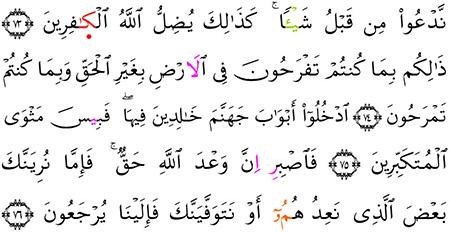 نَّدْعُواْ مِن قَبْلُ شَيْـًٔا ۚ كَذَٰلِكَ يُضِلُّ اُ۬للَّهُ اُ۬لْكَٰفِرِينَ ٧٣
ذَٰلِكُم بِمَا كُنتُمْ تَفْرَحُونَ فِى اِ۬لَارْضِ بِغَيْرِ اِ۬لْحَقِّ وَبِمَا كُنتُمْ
تَمْرَحُونَ ٧٤ اَ۟دْخُلُوٓاْ أَبْوَٰبَ جَهَنَّمَ خَٰلِدِينَ فِيهَا ۖ فَبِيسَ مَثْوَى
اَ۬لْمُتَكَبِّرِينَ ٧٥ فَاصْبِرِ اِنَّ وَعْدَ اَ۬للَّهِ حَقٌّ ۚ فَإِمَّا نُرِيَنَّكَ
بَعْضَ اَ۬لَّذِى نَعِدُهُمُۥٓ أَوْ نَتَوَفَّيَنَّكَ فَإِلَيْنَا يُرْجَعُونَ ٧٦